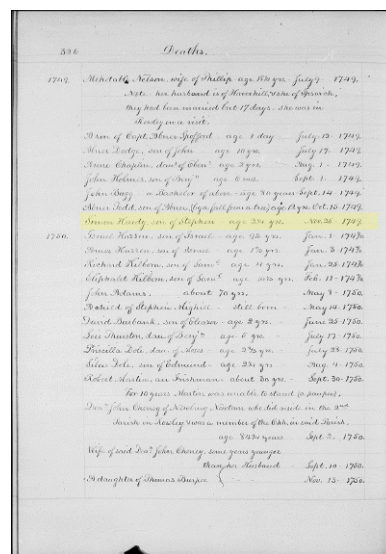 536 Deaths.
1749. Mehetable Nelson, wife of Phillip age 18½ yrs July 9 1749.
Note. her husband is of Haverhill, & she of Ipswich,
they had been married but 17 days. She was in
Rowley on a visit.
A son of Capt Abner Spofford age 1 day July 13. 1749.
Dodge, son of John age 10 yrs July 17. 1749.
Chaplin, dau of age 2 yrs Aug. 1 1749.
John Holmes, son of Benj age 6 mos Sept. 1 1749.
John Bagg a Bachelor of above age 80 years Sept. 14 1749.
Abner Todd, son of Abner (by a fall from a tree) age yrs Oct. 25 1749.
Simon Hardy, son of Stephen age 23½ yrs. Nov. 25 1749.
1750. son of Jan. 1 1749/50
Jan. 3 1749/50
Richard Kilborn, son of Sam age 4 yrs Jan. 23 1749/50
Eliphalet Kilborn, son of Sam age yrs Feb. 1749/50
John Adams. about 70 yrs. May 8 1750.
A child of Stephen still born May 14 1750.
David Burbank, son of Eleazer age 2 yrs. June 25 1750.
Thurston, dau of Benj age 6 yrs July 17 1750.
Priscilla Dole, dau of Moses age July 28 1750.
Silas Dole, son of Edmund age Aug. 4 1750.
Robert Martin, an Irishman about 30 yrs Sept. 30 1750.
For 10 years Martin was unable to stand (a pauper).
Dea John Cheney of Newbury Newtown who did reside in the 2nd
Parish in Rowley & was a member of the Chh. in said Parish,
age years Sept 2. 1750.
Wife of said Dea John Cheney, some years younger
than her Husband Sept. 10 1750.
A daughter of Thomas Burpee Nov. 15 1750.